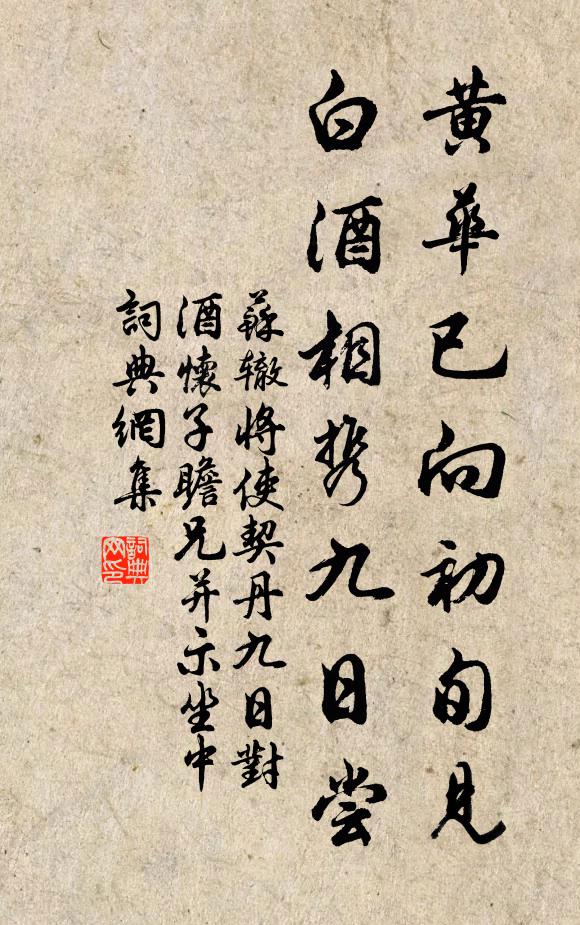 黄華已向初旬見
白酒相携九日尝
蘇辙将使契丹九日對
酒懷子瞻兄并示坐中
詞典網集
詞典
网印